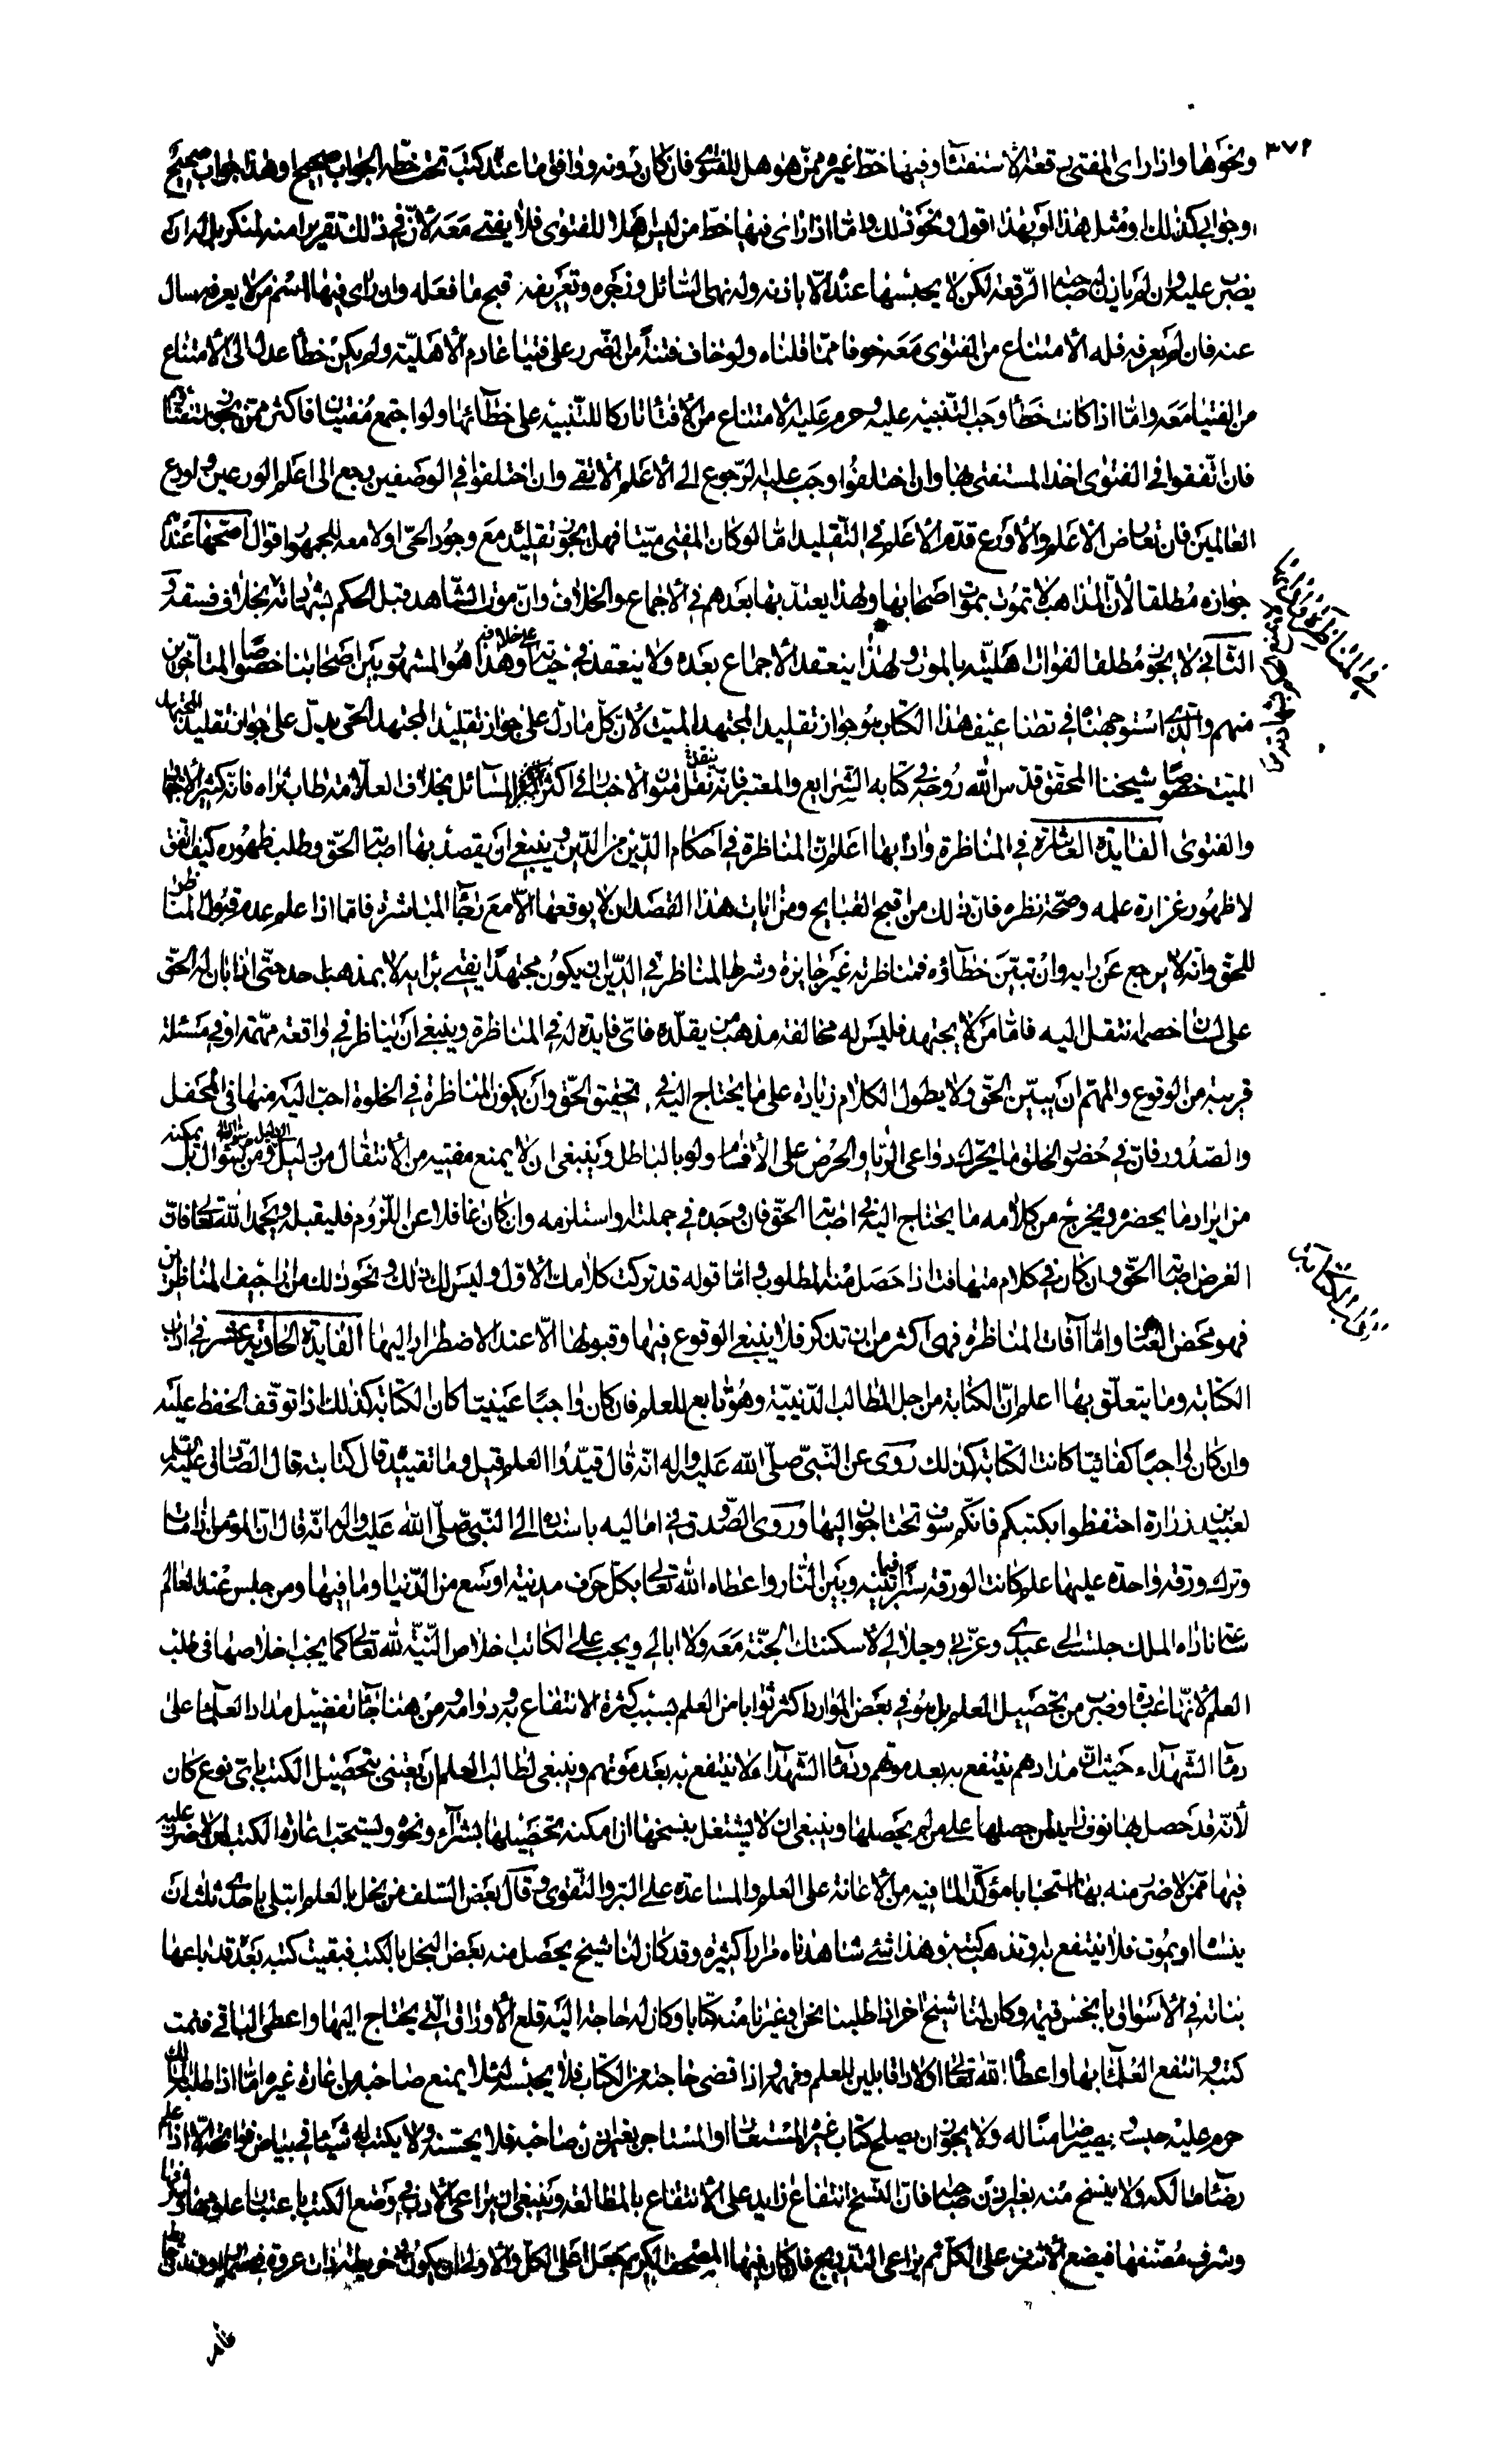 ٣٧٢
ونحوها واذا رای المفتی رقعة الاستفتاء وفیها خطّ غیره ممّن هو اهل للفتوی فان کان دونه ووافق ما عنده کتب تحت خطّه الجواب صحیح او هذا جواب صحیح
او جوابی کذلك او مثل هذا او بهذا اقول ونحو ذلك وامّا اذا رای فیها خطّ من لیس اهلا للفتوی فلا یفتی معه لانّ فی ذلك تقریرا منه لمنکر بل له ان
یضرب علیه وان لم یاذن له صاحب الرّقعة لکن لا یحبسها عنده الّا باذنه وله نهی السّائل وزجره وتعریفه قبح ما فعله وان رای فیها اسم من لا یعرفه سال
عنه فان لم یعرفه فله الامتناع من الفتوی معه خوفا ممّا قلناه ولو خاف فتنة من الضّرر علی فتیا عادم الاهلیّة ولم یکن خطأ عدل الی الامتناع
من الفتیا معه وامّا اذا کانت خطأ وجب التّنبیه علیه وحرم علیه الامتناع من الافتاء تارکا للتّنبیه علی خطائها ولو اجتمع مفتیان فاکثر ممّن یجوز استفتاؤهم
فان اتّفقوا فی الفتوی اخذ المستفتی بها وان اختلفوا وجب علیه الرّجوع الی الاعلم الاتقی وان اختلفوا فی الوصفین رجع الی اعلم الورعین واورع
العالمین فان تعارض الاعلم والاورع قدّم الاعلم فی التّقلید امّا لو کان المفتی میّتا فهل یجوز تقلیده مع وجود الحیّ او لا معه للجمهور اقوال اصحّها عندهم
جوازه مطلقا لانّ المذاهب لا تموت بموت اصحابها ولهذا یعتدّ بها بعدهم فی الاجماع والخلاف وانّ موت الشّاهد قبل الحکم بشهادته بخلاف فسقه و
الثّانی لا یجوز مطلقا لفوات اهلیّته بالموت ولهذا ینعقد الاجماع بعده ولا ینعقد فی حیاته علی خلافه وهذا هو المشهور بین اصحابنا خصوصا المتأخّرین
منهم والّذی استوجهناه فی تضاعیف هذا الکتاب هو جواز تقلید المجتهد المیّت لانّ کلّ ما دلّ علی جواز تقلید المجتهد الحیّ یدلّ علی جواز تقلید المجتهد
المیّت خصوصا شیخنا المحقّق قدّس اللّه روحه فی کتابه الشّرایع والمعتبر فانّه نقل متون الاخبار فی اکثر المسائل بخلاف العلّامة طاب ثراه فانّه کثیر الاجتهاد
والفتوی الفایدة العاشرة فی المناظرة وادابها اعلم انّ المناظرة فی احکام الدّین من الدّین وینبغی ان یقصد بها اصابة الحقّ وطلب ظهوره کیف اتّفق
لا ظهور غزارة علمه وصحّة نظره فانّ ذلك من اقبح القبایح ومن ایات هذا القصد ان لا یوقعها الّا مع رجاء المباشرة فامّا اذا علم عدم قبول المناظر
للحقّ وانّه لا یرجع عن رایه وان تبیّن خطاؤه فمناظرته غیر جایزة وشرط المناظر فی الدّین ان یکون مجتهدا یفتی برایه لا بمذهب احد حتّی اذا بان له الحقّ
علی لسان خصمه انتقل الیه فامّا من لا یجتهد فلیس له مخالفة مذهب من یقلّده فایّ فایدة له فی المناظرة وینبغی ان یناظر فی واقعة مهمّة او فی مسئلة
قریبة من الوقوع والمهمّ ان یبیّن الحقّ ولا یطول الکلام زیادة علی ما یحتاج الیه فی تحقیق الحقّ وان یکون المناظرة فی الخلوة احبّ الیه منها فی المحفل
والصّدور فانّ فی حضور الخلق ما یحرّك دواعی الرّیاء والحرص علی الافحام ولو بالباطل وینبغی ان لا یمنع مفتیه من الانتقال من دلیل الی دلیل ومن سؤال الی سؤال بل یمکنه
من ایراد ما یحضره ویخرج من کلامه ما یحتاج الیه فی اصابة الحقّ فان وجده فی جملته او استلزمه وان کان غافلا عن اللّزوم فلیقبله ویحمد اللّه تعالی فانّ
الغرض اصابة الحقّ وان کان فی کلام متهافت اذا حصل منه المطلوب وامّا قوله قد ترکت کلامك الاوّل ولیس لك ذلك ونحو ذلك من اراجیف المناظرین
فهو محض العناد وامّا آفات المناظرة فهی اکثر من ان تذکر فلا ینبغی الوقوع فیها وقبولها الّا عند الاضطرار الیها الفایدة الحادیة عشر فی اداب
الکتابة وما یتعلّق بها اعلم انّ الکتابة من اجلّ المطالب الدّینیّة وهو تابع للعلم فان کان واجبا عینیّا کان الکتابة کذلك اذا توقّف الحفظ علیه
وان کان واجبا کفائیّا کانت الکتابة کذلك روی عن النّبیّ صلّی اللّه علیه واله انّه قال قیّدوا العلم قیل وما تقییده قال کتابته قال الصّادق علیه السّلام
لعبید بن زرارة احتفظوا بکتبکم فانّکم سوف تحتاجون الیها وروی الصّدوق فی امالیه باسناده الی النّبیّ صلّی اللّه علیه واله انّه قال انّ المؤمن اذا مات
وترك ورقة واحدة علیها علم کانت الورقة سترا فیما بینه وبین النّار واعطاه اللّه تعالی بکلّ حرف مدینة اوسع من الدّنیا وما فیها ومن جلس عند العالم
ساعة ناداه الملك جلست الی عبدی وعزّتی وجلالی لاسکننّك الجنّة معه ولا ابالی ویجب علی الکاتب اخلاص النّیّة للّه تعالی کما یجب اخلاصها فی طلب
العلم لانّها عبادة وضرب من تحصیل العلم بل هو فی بعض الموارد اکثر ثوابا من العلم بسبب کثرة الانتفاع به ودوامه ومن هنا جاء تفضیل مداد العلماء علی
دماء الشّهداء حیث انّ مدادهم ینتفع به بعد موتهم ودماء الشّهداء لا ینتفع به بعد موتهم وینبغی لطالب العلم ان یعتنی بتحصیل الکتب بایّ نوع کان
لانّه قد حصل بها نوف السید لمن حصلها علی من لم یحصلها وینبغی ان لا یشتغل بنسخها ان امکنه تحصیلها بشراء ونحوه ویستحبّ اعارة الکتب لمن لا ضرر علیه
فیها ممّن لا ضرر منه بها استحبابا مؤکّدا لما فیه من الاعانة علی العلم والمساعدة علی البرّ والتّقوی وقال بعض السّلف من بخل بالعلم ابتلی باحدی ثلاث ان
ینساه او یموت فلا ینتفع به وتذهب کتبه وهذا شئ شاهدناه مرارا کثیرة وقد کان لنا شیخ یحصل منه بعض البخل بالکتب فبقیت کتبه بعده قد باعها
بناته فی الاسواق بابخس قیمة وکان لنا شیخ اخر اذا طلبنا نحن او غیرنا منه کتابا وکان له حاجة الیه قلع الاوراق الّتی یحتاج الیها واعطی الباقی فنمت
کتبه وانتفع العلماء بها واعطاه اللّه تعالی اولادا قابلین للعلم وفهمه واذا قضی حاجته من الکتاب فلا یحبسه لئلا یمنع صاحبه من اعارة غیره امّا اذا طلبه المالك
حرم علیه حبسه ویصیر ضامنا له ولا یجوز ان یصلح کتاب غیره المستعار او المستاجر بغیر اذن صاحبه فلا یحشّیه ولا یکتب له شیئا فی بیاض فواتحه الّا اذا علم
رضاء مالکه ولا ینسخ منه بغیر اذن صاحبه فانّ النّسخ انتفاع زاید علی الانتفاع بالمطالعة وینبغی ان یراعی الادب فی وضع الکتب باعتبار علومها وشرفها
وشرف مصنّفها فیضع الاشرف علی الکلّ ثم یراعی التّدریج فان کان فیها المصحف الکریم جعل اعلی الکلّ والاولی ان یکون فی خریطة ذات عروة فی
فی المناظرة
فی اداب الکتابة